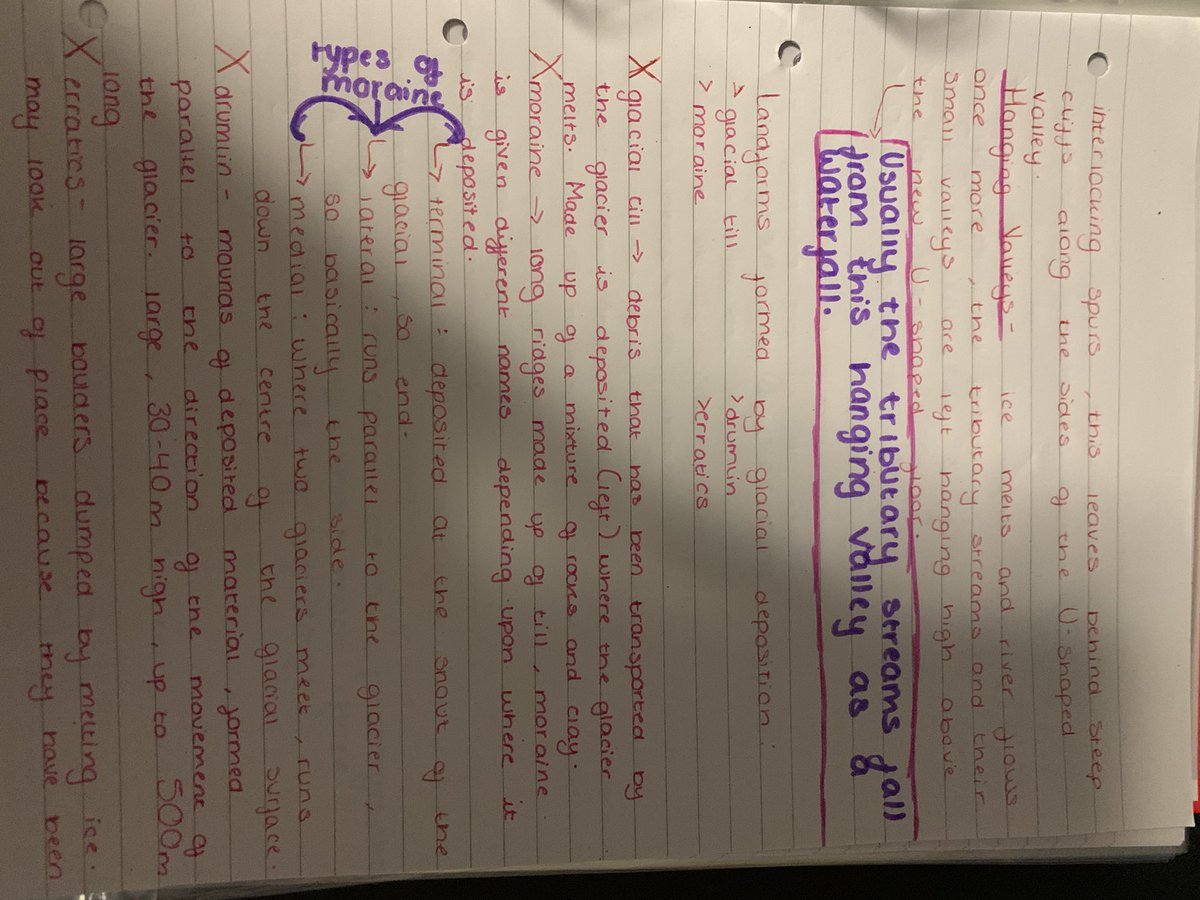 interlocking spurs, this leaves behind steep
cliffs along the sides of the U-shaped
valley.
Hanging Valleys - ice melts and river flows
once more, the tributary streams and their
small valleys are left hanging high above
the new U-shaped floor.
Usually the tributary streams fall
from this hanging valley as a
waterfall.
Landforms formed by glacial deposition:
> glacial till >drumlin
> moraine >erratics
X glacial till -> debris that has been transported by
the glacier is deposited (left) where the glacier
melts. Made up of a mixture of rocks and clay.
X moraine -> long ridges made up of till, moraine
is given different names depending upon where it
is deposited.
types of
moraine
-> terminal: deposited at the snout of the
glacial, so end.
-> lateral: runs parallel to the glacier,
so basically the side.
-> medial: where two glaciers meet, runs
down the centre of the glacial surface.
X drumlin - mounds of deposited material, formed
parallel to the direction of the movement of
the glacier. large, 30-40m high, up to 500m
long
X erratics - large boulders dumped by melting ice.
may look out of place because they have been